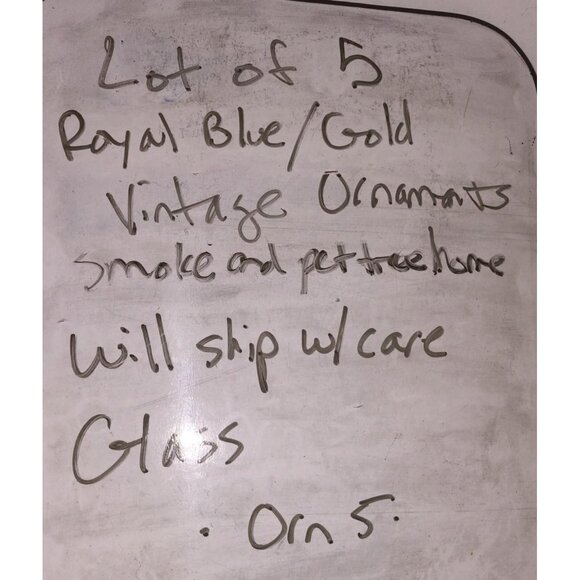 Lot of 5
Royal Blue/Gold
Vintage Ornaments
smoke and pet free home
Will ship w/ care
Glass
. Orn 5.